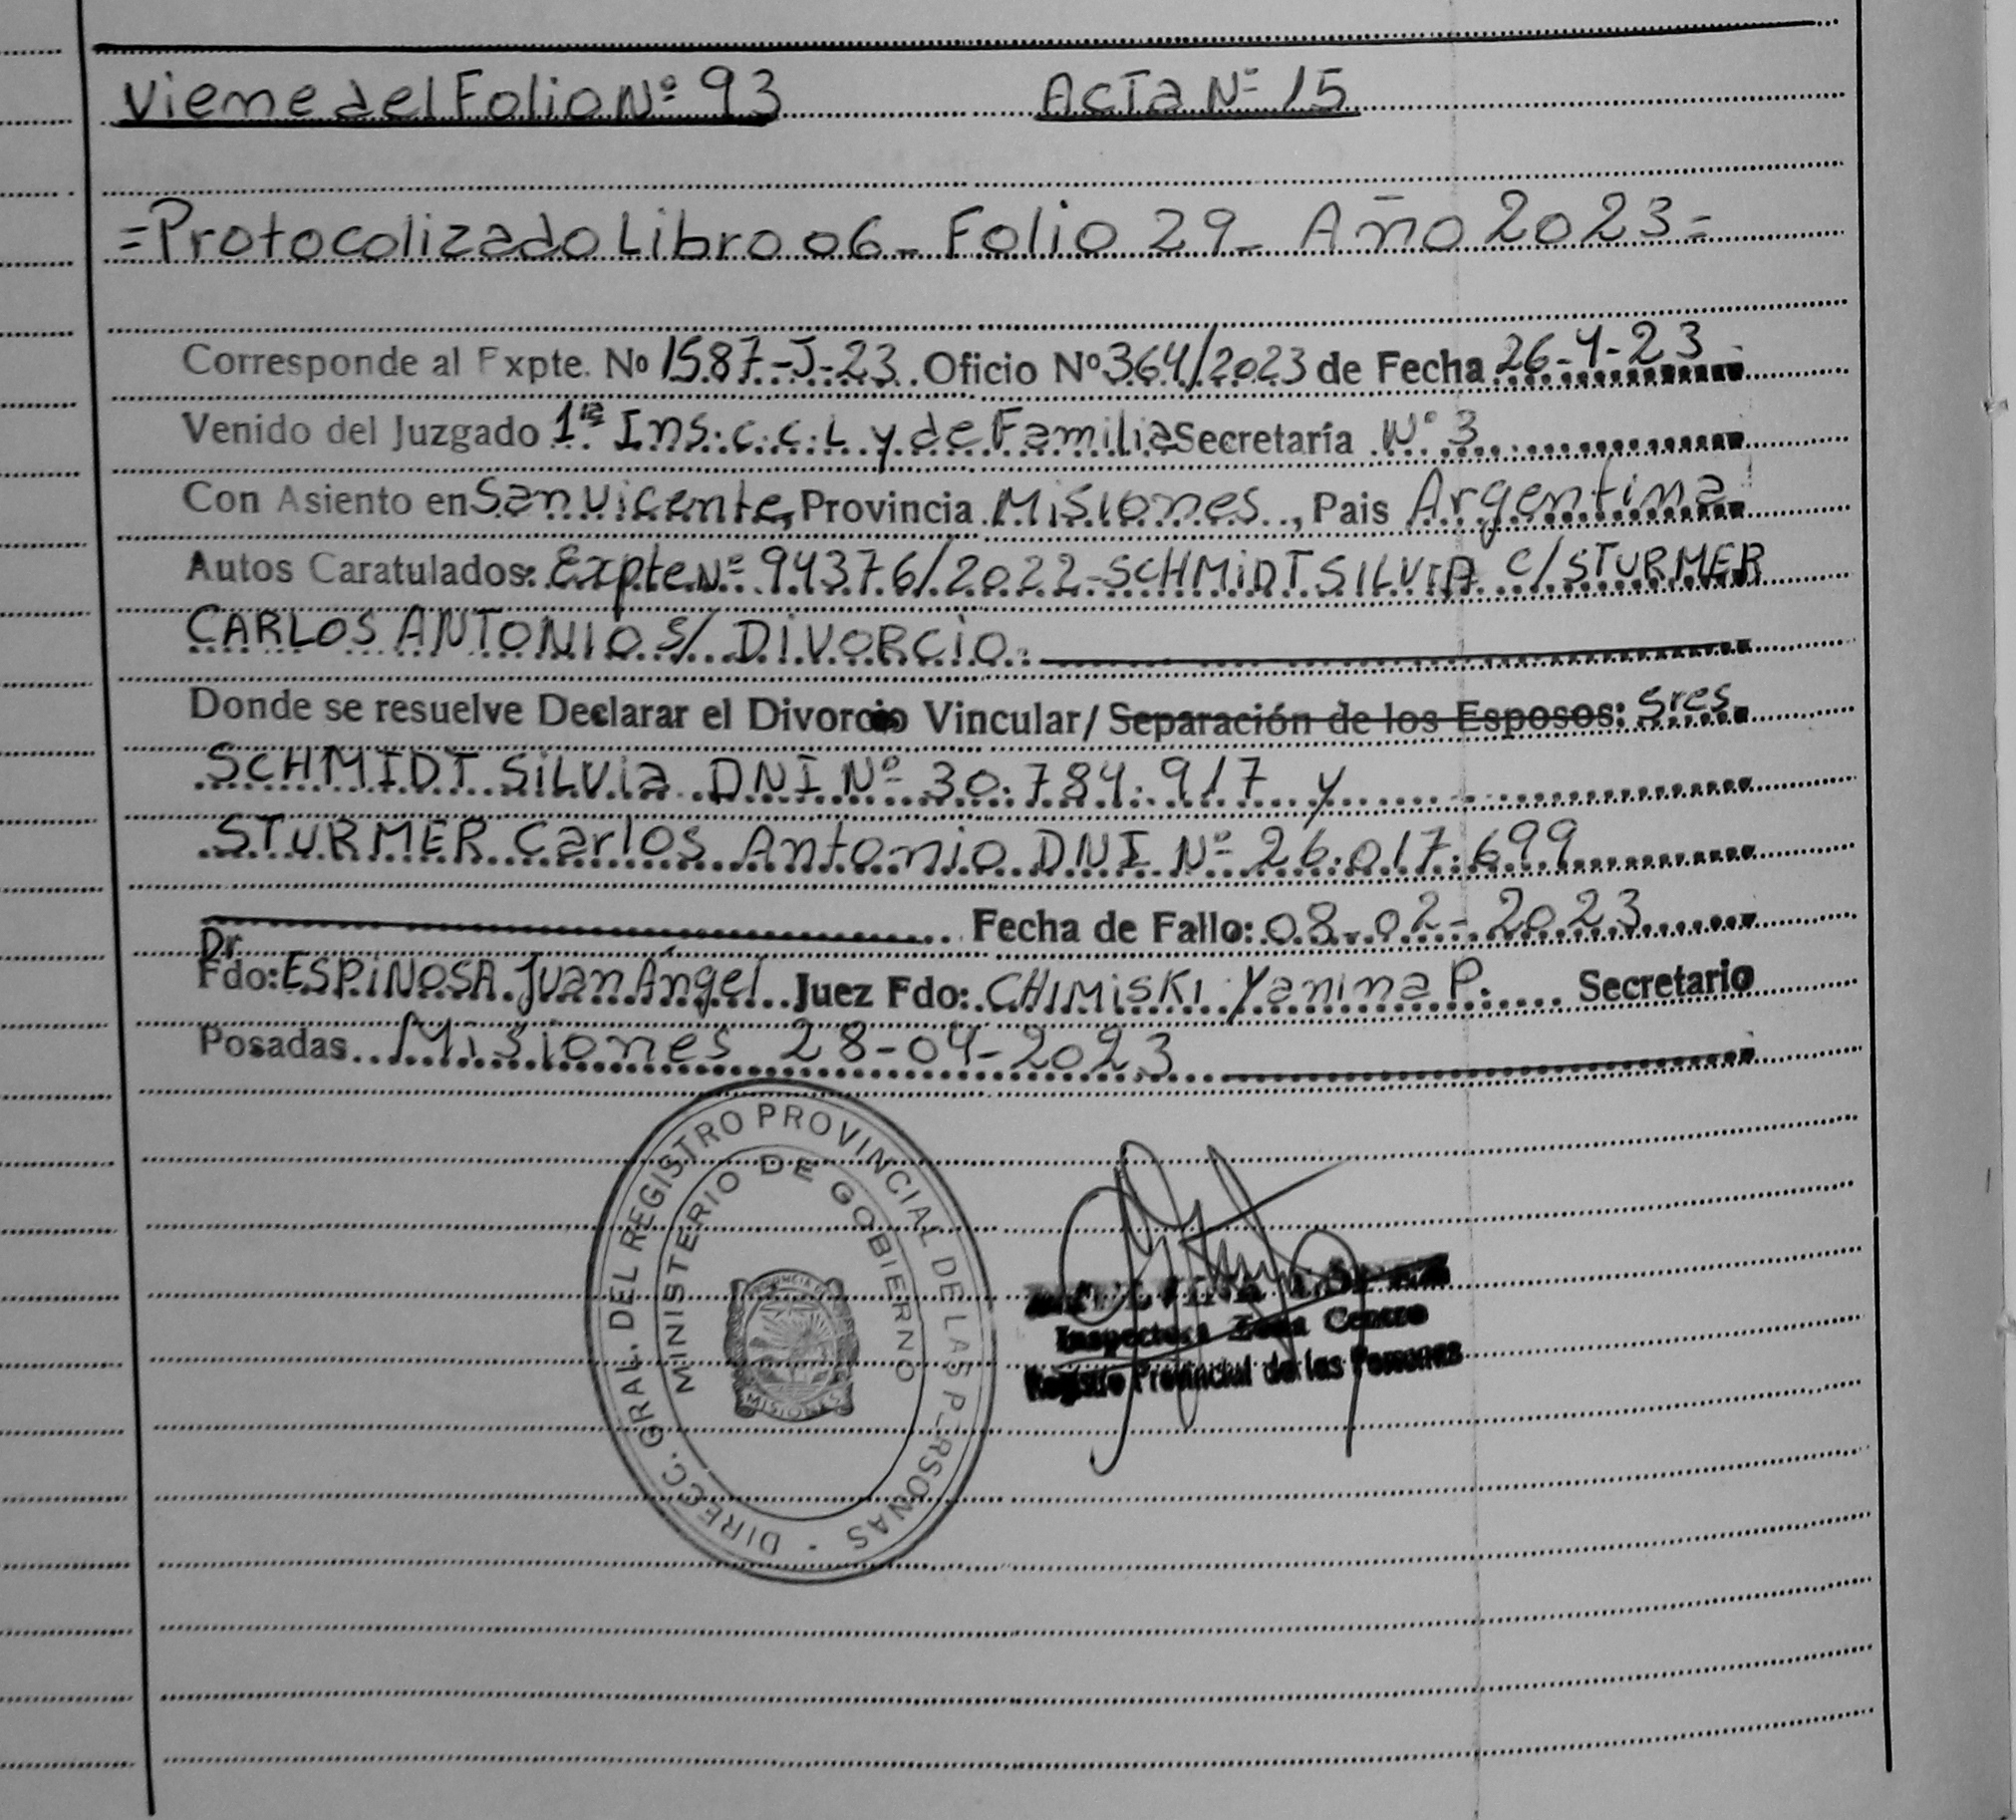 Viene del Folio Nº 93 Acta Nº 15
=Protocolizado Libro 06- Folio 29- Año 2023=
Corresponde al Expte. Nº 1587-J-23. Oficio Nº 364/2023 de Fecha 26-4-23
Venido del Juzgado 1ra Ins. C.C.L y de Familia Secretaría Nº 3
Con Asiento en San Vicente, Provincia Misiones, Pais Argentina
Autos Caratulados: Expte Nº 94376/2022-SCHMIDT SILVIA C/STURMER
CARLOS ANTONIO S/ DIVORCIO.
Donde se resuelve Declarar el Divorcio Vincular/ Separación de los Esposos: Sres
SCHMIDT SILVIA DNI Nº 30.784.917 y
STURMER Carlos Antonio DNI Nº 26.017.699
Fecha de Fallo: 08-02-2023
Dr
Fdo: ESPINOSA Juan Ángel Juez Fdo: CHIMISKI Yanina P. Secretario
Posadas Misiones 28-04-2023
DIRECC. GRAL. DEL REGISTRO PROVINCIAL DE LAS PERSONAS -
MINISTERIO DE GOBIERNO
MISIONES
Inspectora Zona Centro
Registro Provincial de las Personas